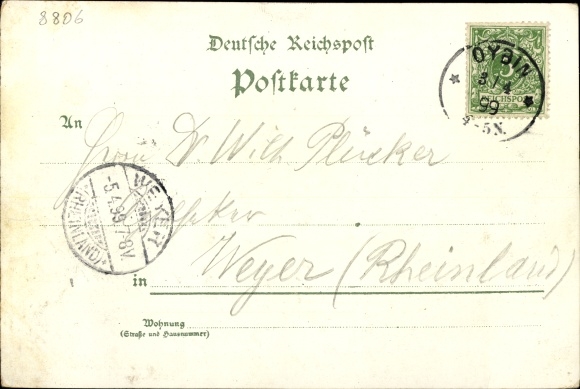 8806
Deutsche Reichspost
Postkarte
OYBIN
3/4
99
4-5N.
5
REICHSPOST
An
Herrn Dr Wilh Plücker
WEYER
(RHEINLAND)
-5.4.99.7-8V.
in Weyer (Rheinland)
Wohnung
(Straße und Hausnummer)